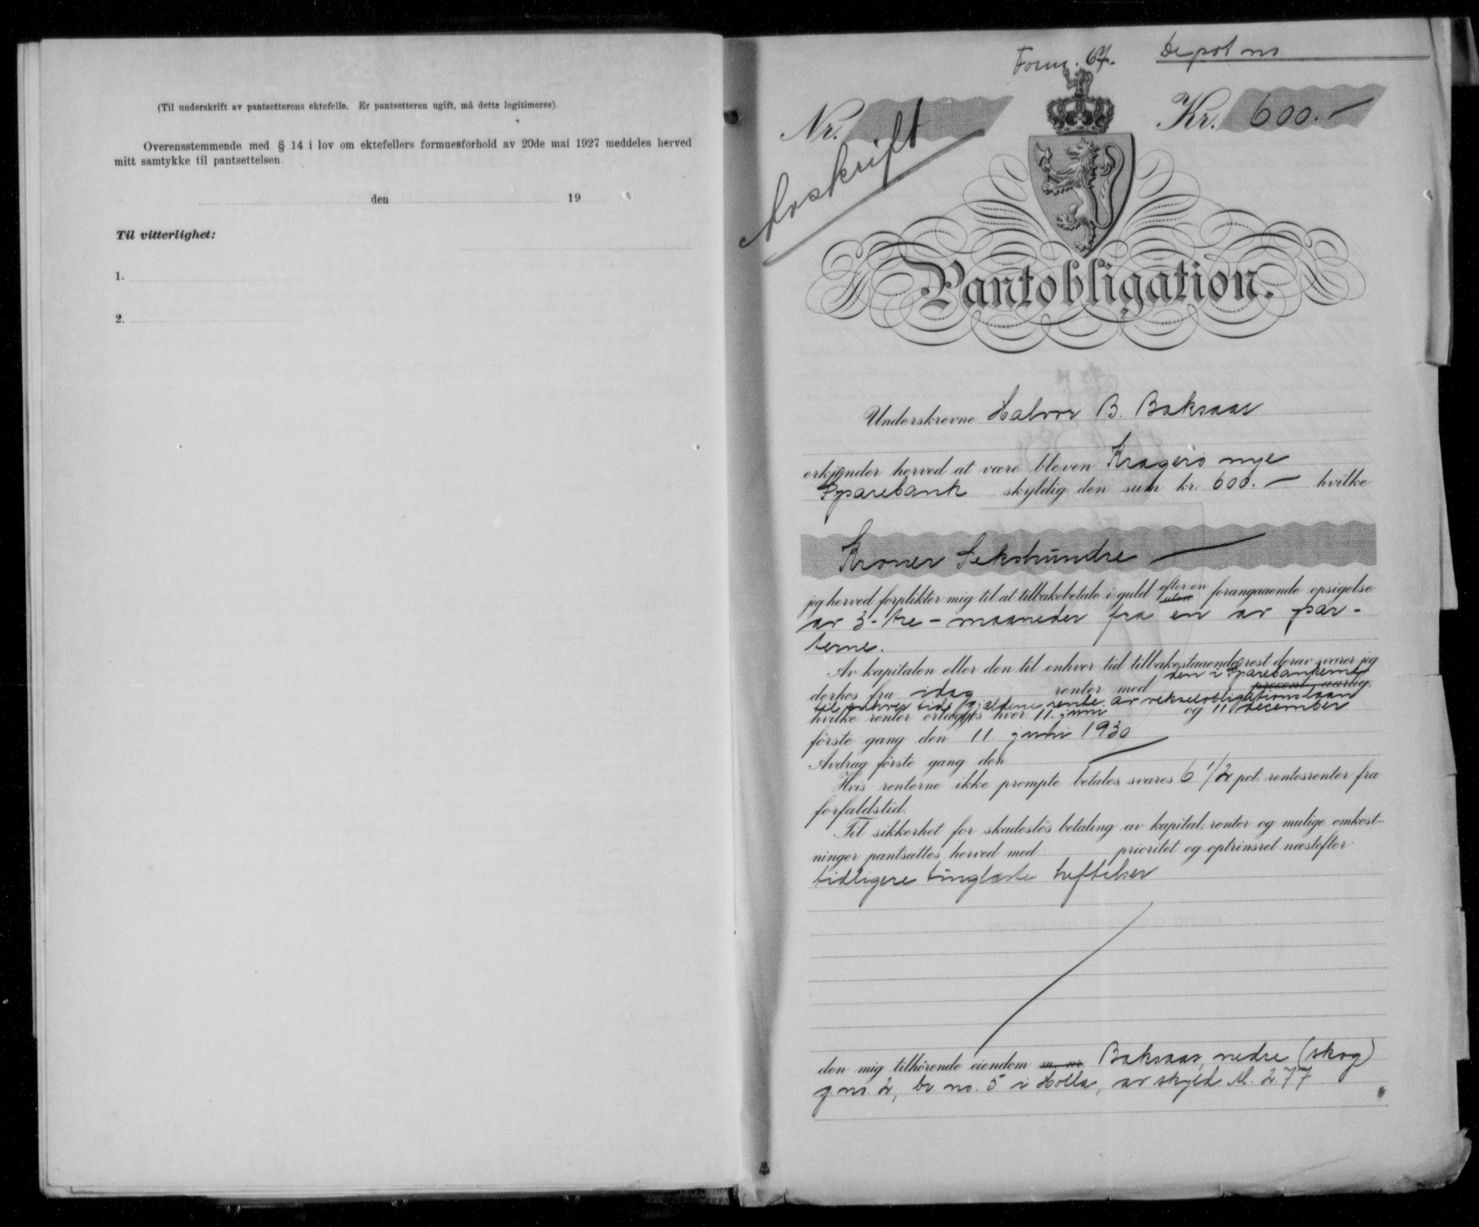 (Til underskrift av pantsetterens ektefelle. Er pantsetteren ugift, må dette legitimeres).
Overensstemmende med § 14 i lov om ektefellers formuesforhold av 20de mai 1927 meddeles herved
mitt samtykke til pantsettelsen.
den 19
Til vitterlighet:
1.
2.
Depot no
Nr. Kr. 600.-
Avskrift
Pantobligation.
Underskrevne Halvor B. Baksaas
erkjender herved at være bleven Kragerø nye
Sparebank skyldig den sum kr. 600.- hvilke
Kroner Sekshundre
jeg herved forplikter mig til at tilbakebetale i guld efter en uten forangaaende opsigelse
av 3-tre-maaneder fra en av par-
terne.
Av kapitalen eller den til enhver tid tilbakestaaende rest derav svarer jeg
derhos fra idag renter med den i Sparebankerne procent aarlig,
til enhver tid gjældene rente av vekselobligationslaan
hvilke renter erlægges hver 11. juni og 11 december
første gang den 11 juni 1930
Avdrag første gang den
Hvis renterne ikke prompte betales, svares 6 1/2 pct. rentesrenter fra
forfaldstid.
Til sikkerhet for skadesløs betaling av kapital, renter og mulige omkost-
ninger pantsættes herved med prioritet og optrinsret næstefter
tidligere tinglæste heftelser
den mig tilhørende eiendom Baksaas nedre (skog)
g.nr. 2, br. no. 5 i Holla, av skyld M. 2 77